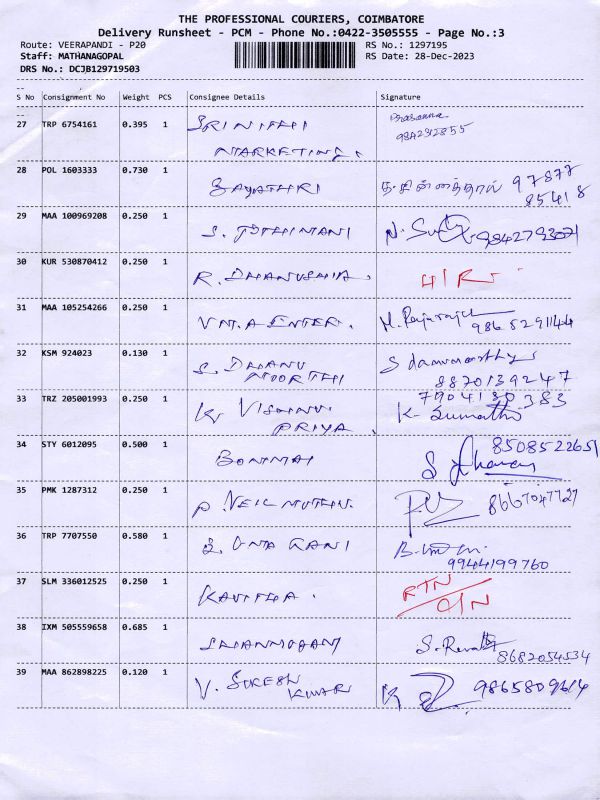 THE PROFESSIONAL COURIERS, COIMBATORE
Delivery Runsheet - PCM - Phone No.:0422-3505555 - Page No.:3
Route: VEERAPANDI - P20 RS No.: 1297195
Staff: MATHANAGOPAL RS Date: 28-Dec-2023
DRS No.: DCJB129719503
S No Consignment No Weight PCS Consignee Details Signature
27 TRP 6754161 0.395 1 SRINITHI Prasanna
MARKETING. 9842312855
28 POL 1603333 0.730 1 GAYATHRI 97877
85418
29 MAA 100969208 0.250 1 S. JOTHIMANI N. 9842793071
30 KUR 530870412 0.250 1 R. DHANUSHIA. H/R
31 MAA 105254266 0.250 1 VM.A ENTER. M. Rajarajan
9865291144
32 KSM 924023 0.130 1 S. DHANU S damumoorthy
MOORTHI 8870139247
33 TRZ 205001993 0.250 1 K. VISHNU 7904130383
PRIYA. K. Sumathi
34 STY 6012095 0.500 1 BOMMAI 8508522651
S
35 PMK 1287312 0.250 1 P. VEILMUTHU. 8667047727
36 TRP 7707550 0.580 1 S. UMA RANI B.
9944199760
37 SLM 336012525 0.250 1 KAVITHA. RTN
O/N
38 IXM 505559658 0.685 1 SHANMUGAM S. Revathi
8682054534
39 MAA 862898225 0.120 1 V. SURESH K 9865809614
KUMAR